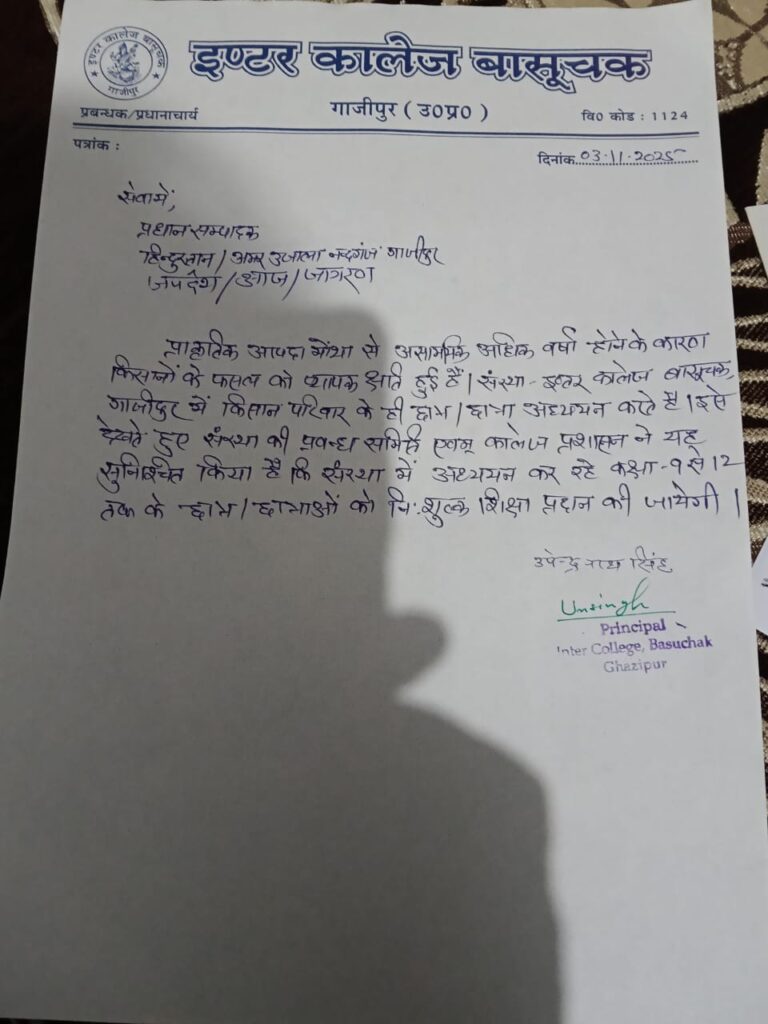 इण्टर कालेज बासूचक
गाजीपुर
इण्टर कालेज बासूचक
गाजीपुर ( उ०प्र० )
प्रबन्धक/प्रधानाचार्य
वि० कोड : 1124
पत्रांक :
दिनांक 03.11.2025
सेवामें,
प्रधान सम्पादक
हिन्दुस्तान / अमर उजाला नन्दगंज गाजीपुर
/ आज / जागरण
प्राकृतिक आपदा मोंथा से असामयिक अधिक वर्षा होने के कारण
किसानों के फसल को व्यापक क्षति हुई है। संस्था - इण्टर कालेज बासूचक,
गाजीपुर में किसान परिवार के ही छात्र / छात्रा अध्ययन करते है। इसे
देखते हुए संस्था की प्रबन्ध समिति एवम् कालेज प्रशासन ने यह
सुनिश्चित किया है कि संस्था में अध्ययन कर रहे कक्षा - ९ से 12
तक के छात्र / छात्राओं को नि:शुल्क शिक्षा प्रदान की जायेगी।
उपेन्द्र नाथ सिंह
Unsingh
Principal
Inter College, Basuchak
Ghazipur